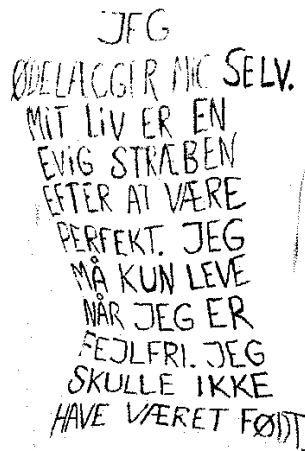 JEG
ØDELÆGGER MIG SELV.
MIT LIV ER EN
EVIG STRÆBEN
EFTER AT VÆRE
PERFEKT. JEG
MÅ KUN LEVE
NÅR JEG ER
FEJLFRI. JEG
SKULLE IKKE
HAVE VÆRET FØDT.